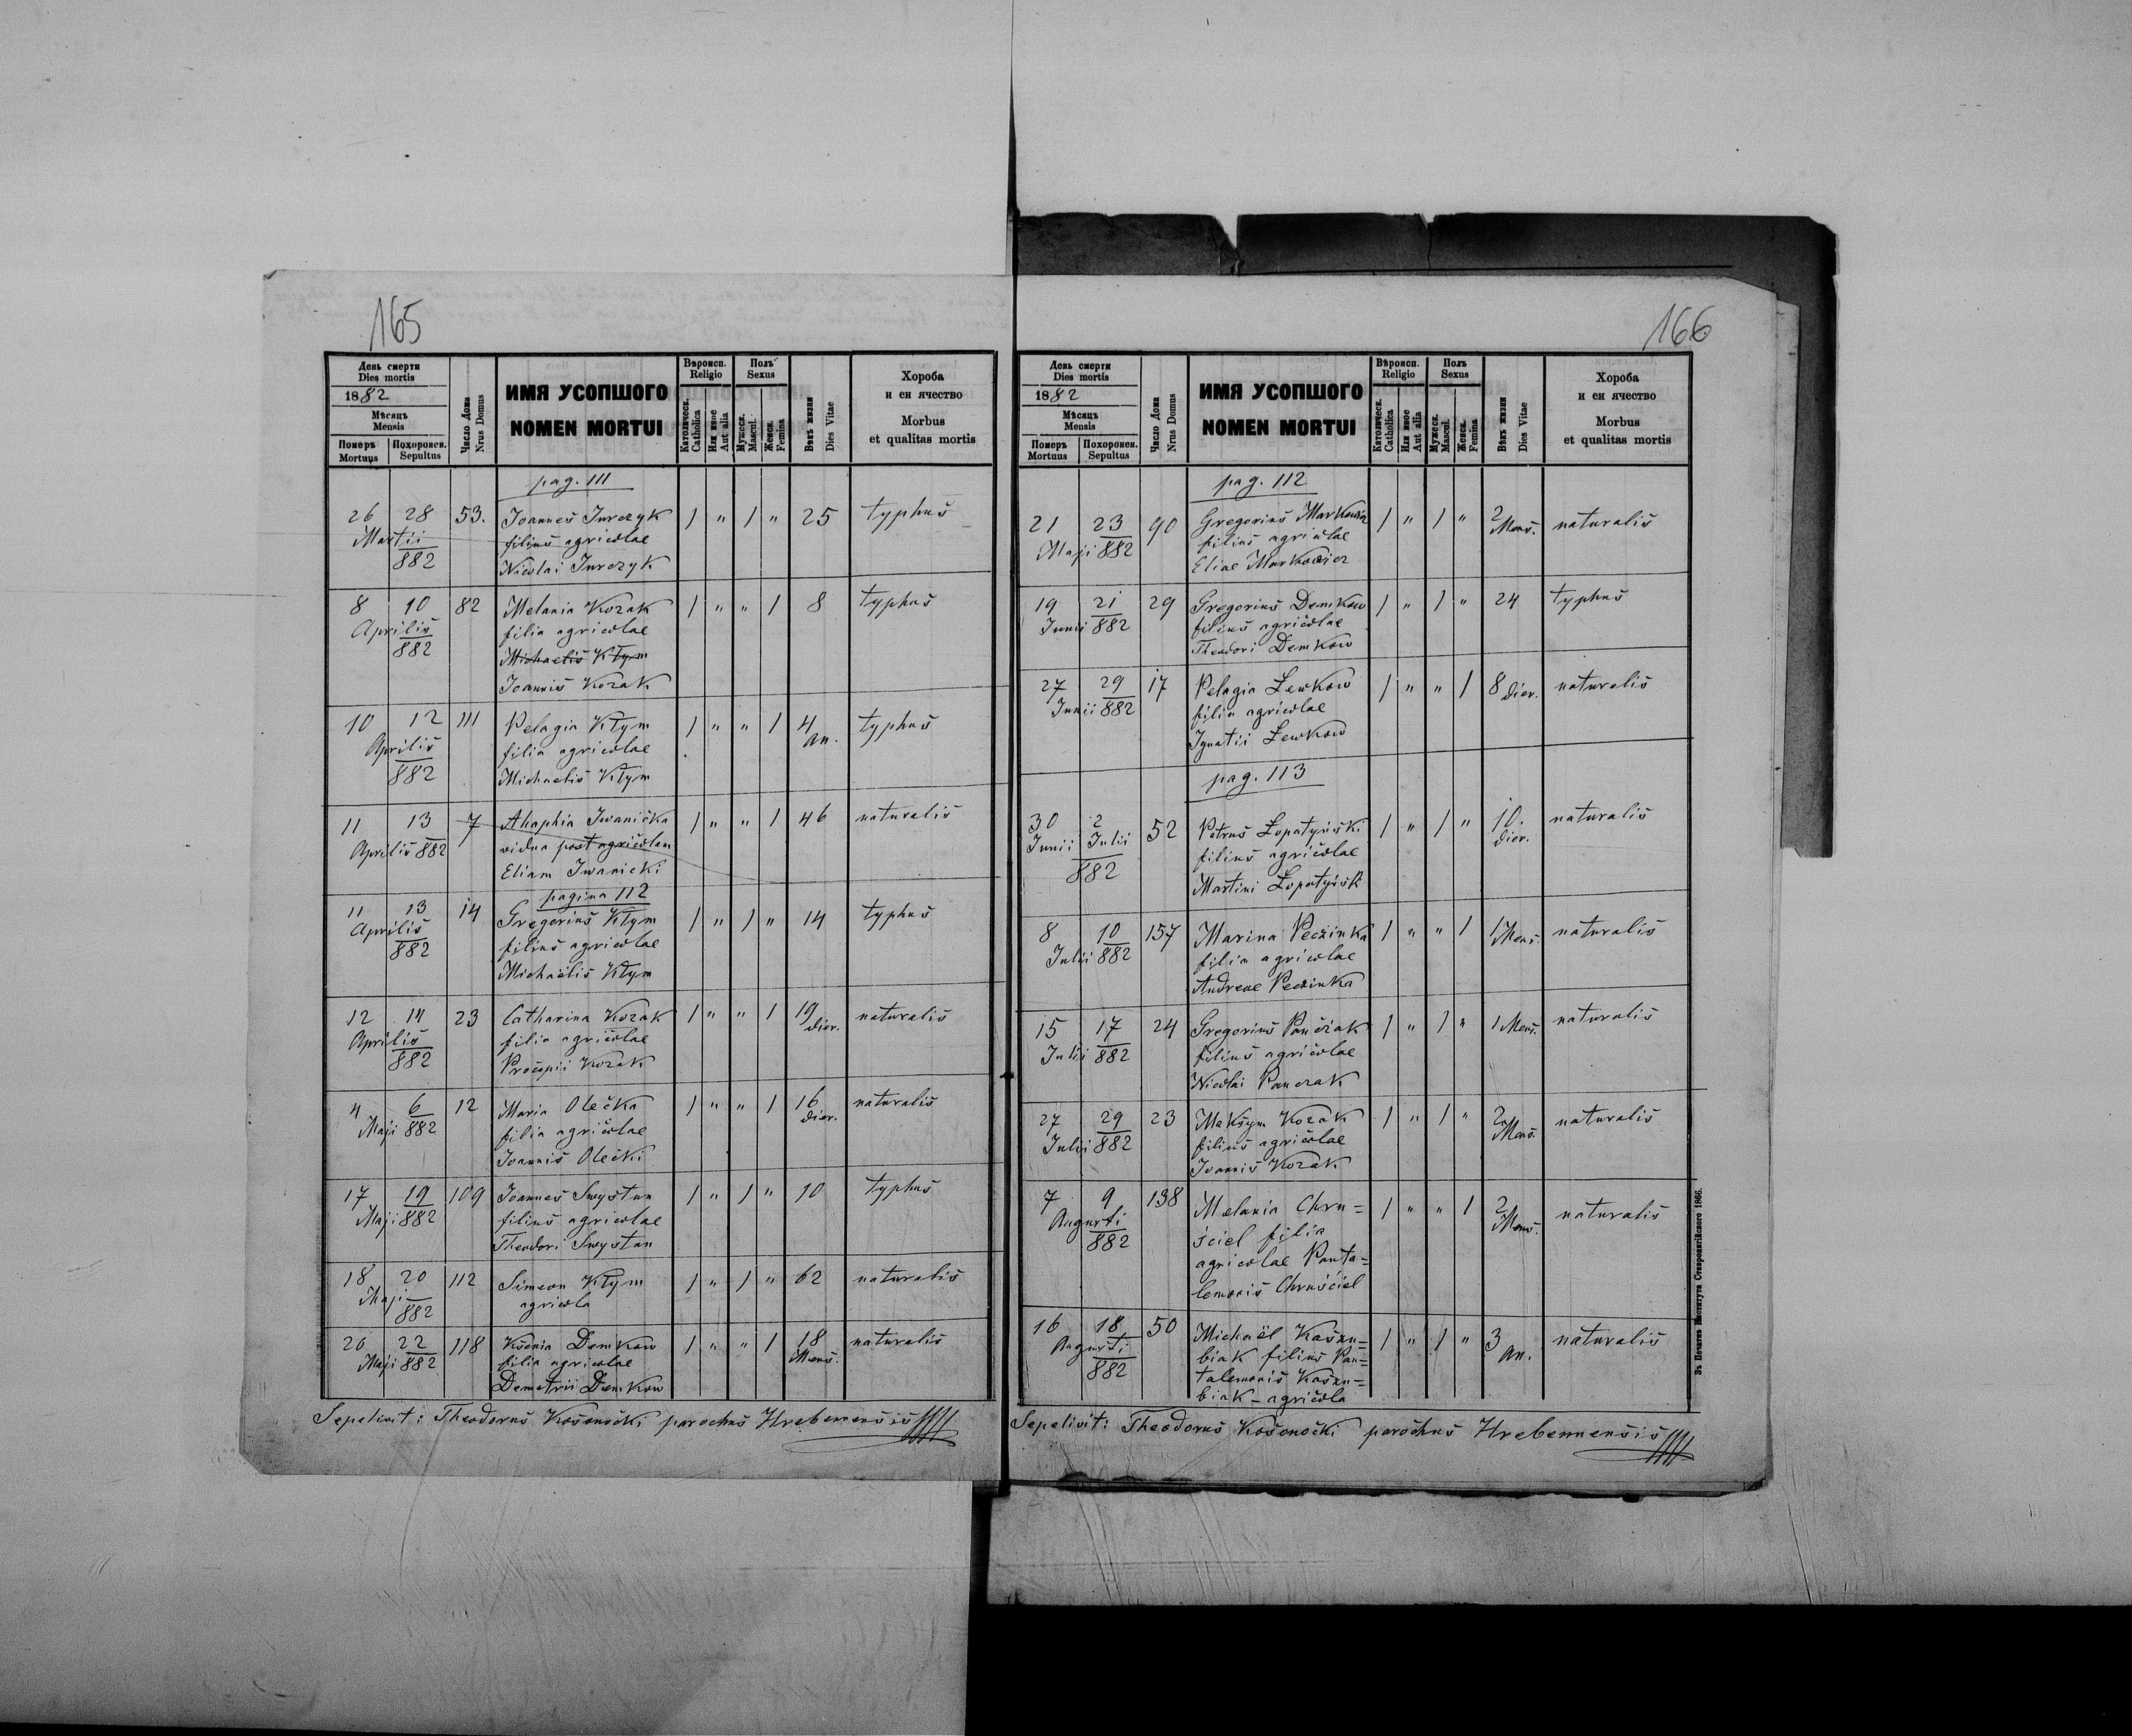 165
День смерти
Dies mortis
1882
Мѣсяцъ
Mensis
Померъ
Mortuus
Похоронен.
Sepultus
Число Дома
Nrus Domus
ИМЯ УСОПШОГО
NOMEN MORTUI
Вѣроисп.
Religio
Католическ.
Catholica
Или иное
Aut alia
Полъ
Sexus
Мужеск.
Mascul.
Женск.
Femina
Вѣкъ жизни
Dies Vitae
Хороба
и еи ячество
Morbus
et qualitas mortis
pag. 111
26 28 53. Joannes Jurczyk / " / " 25 typhus
Martii filius agricolae
882 Nicolai Jurczyk
8 10 82 Melania Kozak / " " / 8 typhus
Aprilis filia agricolae
882 Michaelis Kłym
Joannis Kozak
10 12 111 Pelagia Kłym / " " / 4 an. typhus
Aprilis filia agricolae
882 Michaelis Kłym
11 13 7 Ahaphia Iwanička / " " / 46 naturalis
Aprilis 882 vidua post agricolam
Eliam Iwanicki
pagina 112
11 13 14 Gregorius Kłym / " / " 14 typhus
Aprilis filius agricolae
882 Michaëlis Kłym
12 14 23 Catharina Kozak / " " / 19 dier. naturalis
Aprilis filia agricolae
882 Procopii Kozak
4 6 12 Maria Olečka / " " / 16 dier. naturalis
Maji 882 filia agricolae
Joannis Olečki
17 19 109 Joannes Swystun / " / " 10 typhus
Maji 882 filius agricolae
Theodori Swystun
18 20 112 Simeon Kłym / " / " 62 naturalis
Maji 882 agricola
20 22 118 Ksenia Demkow / " " / 18 Mens. naturalis
Maji 882 filia agricolae
Demetrii Demkow
Sepelivit: Theodorus Kosonocki parochus Hrebennensis
166
День смерти
Dies mortis
1882
Мѣсяцъ
Mensis
Померъ
Mortuus
Похоронен.
Sepultus
Число Дома
Nrus Domus
ИМЯ УСОПШОГО
NOMEN MORTUI
Вѣроисп.
Religio
Католическ.
Catholica
Или иное
Aut alia
Полъ
Sexus
Мужеск.
Mascul.
Женск.
Femina
Вѣкъ жизни
Dies Vitae
Хороба
и еи ячество
Morbus
et qualitas mortis
pag. 112
21 23 90 Gregorius Markowicz / " / " 2 Mens. naturalis
Maji 882 filius agricolae
Eliae Markowicz
19 21 29 Gregorius Demkow / " / " 24 typhus
Junii 882 filius agricolae
Theodori Demkow
27 29 17 Pelagia Lewkow / " " / 8 dier. naturalis
Junii 882 filia agricolae
Ignatii Lewkow
pag. 113
30 2 52 Petrus Łopatyński / " / " 10. dier. naturalis
Junii Julii filius agricolae
882 Martini Łopatyński
8 10 157 Marina Peczinka / " " / 1 Mens. naturalis
Julii 882 filia agricolae
Andreae Peczinka
15 17 24 Gregorius Pančzak / " / " 1 Mens. naturalis
Julii 882 filius agricolae
Nicolai Panczak
27 29 23 Maksym Kozak / " / " 2 Mens. naturalis
Julii 882 filius agricolae
Joannis Kozak
7 9 138 Melania Chru= / " " / 2 Mens. naturalis
Augusti ściel filia
882 agricolae Panta=
lemonis Chruściel
16 18 50 Michaël Kaszu= / " / " 3 an. naturalis
Augusti biak filius Pan=
882 talemonis Kaszu=
biak - agricola
Sepelivit: Theodorus Kosonocki parochus Hrebennensis
Зъ Печатнѣ Института Ставропигійского 1866.